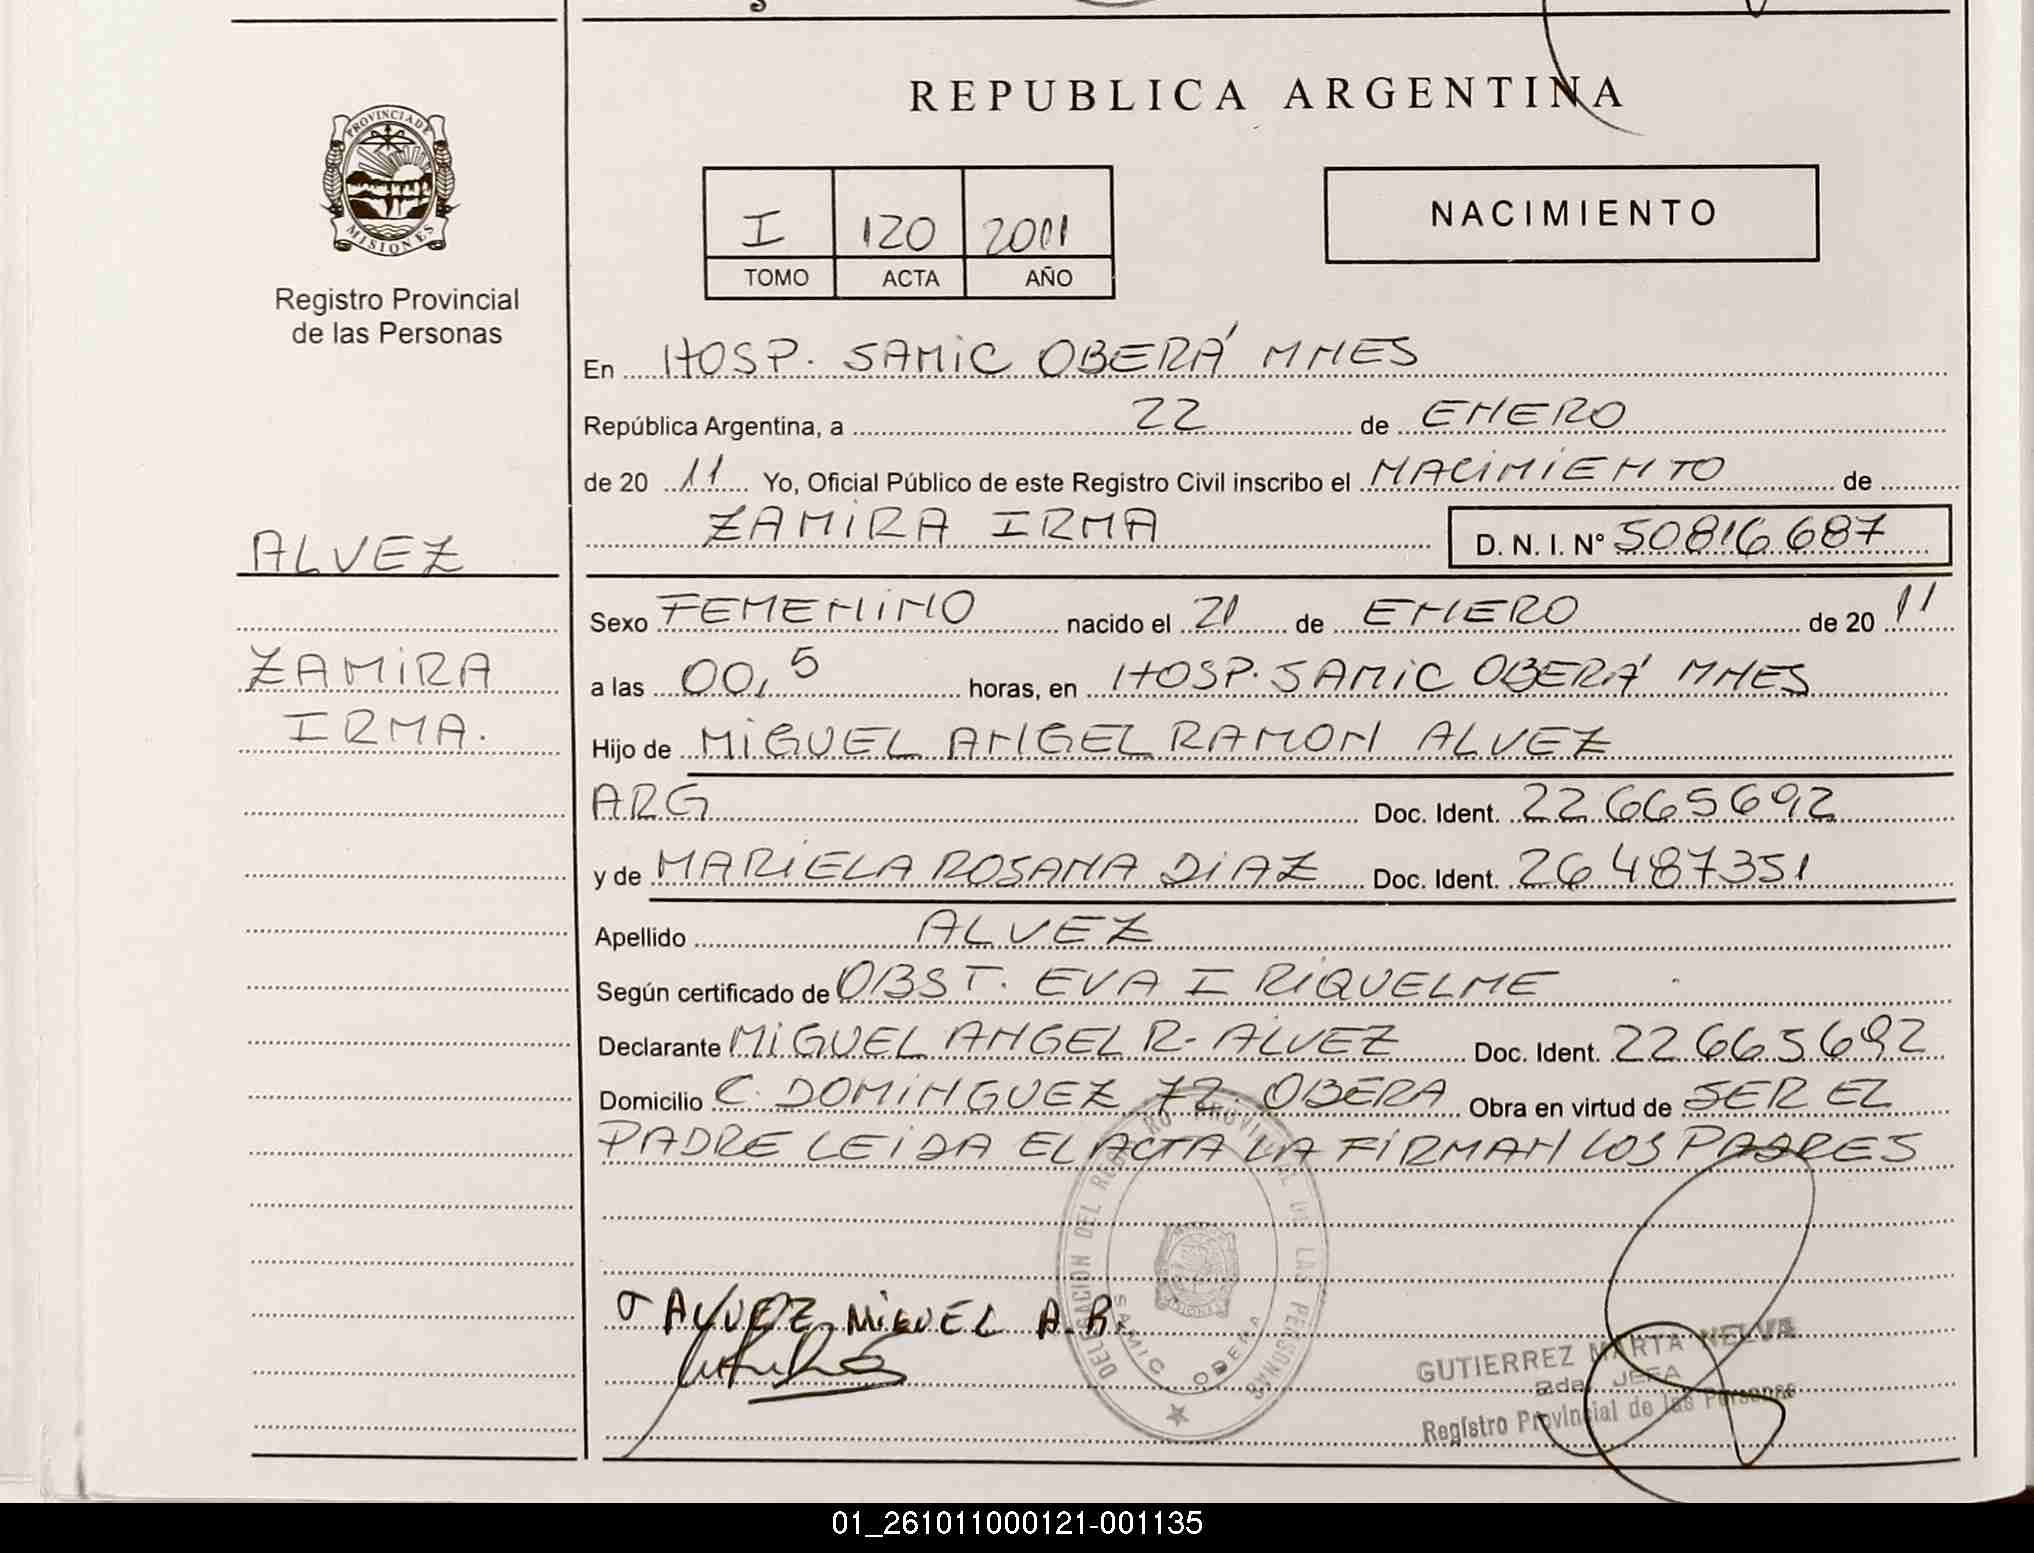 REPUBLICA ARGENTINA
PROVINCIA DE
MISIONES
Registro Provincial
de las Personas
I 120 2011
TOMO ACTA AÑO
NACIMIENTO
En HOSP. SAMIC OBERÁ MNES
República Argentina, a 22 de ENERO
de 20 11 Yo, Oficial Público de este Registro Civil inscribo el NACIMIENTO de
ZAMIRA IRMA D. N. I. N° 50816687
ALVEZ
ZAMIRA
IRMA.
Sexo FEMENINO nacido el 21 de ENERO de 20 11
a las 00,5 horas, en HOSP. SAMIC OBERÁ MNES
Hijo de MIGUEL ANGEL RAMON ALVEZ
ARG Doc. Ident. 22665692
y de MARIELA ROSANA DIAZ Doc. Ident. 26487351
Apellido ALVEZ
Según certificado de OBST. EVA I RIQUELME
Declarante MIGUEL ANGEL R- ALVEZ Doc. Ident. 22665692
Domicilio C. DOMINGUEZ 72 OBERA Obra en virtud de SER EL
PADRE LEIDA EL ACTA LA FIRMAN LOS PADRES
DELEGACION DEL REGISTRO PROVINCIAL DE LAS PERSONAS
SAMIC OBERA
ALVEZ MIGUEL A.R.
GUTIERREZ MARTA NELVA
2da. JEFA
Registro Provincial de las Personas
01_261011000121-001135